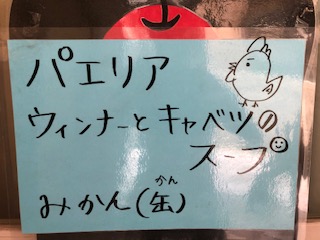 パエリア
ウィンナーとキャベツの
スープ
みかん(缶)
かん